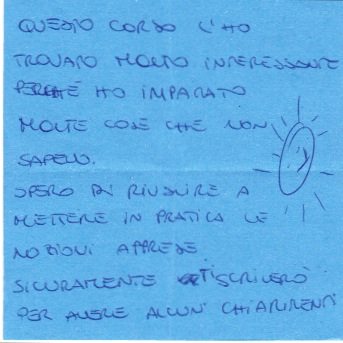 QUESTO CORSO L'HO
TROVATO MOLTO INTERESSANTE
PERCHÉ HO IMPARATO
MOLTE COSE CHE NON
SAPEVO.
SPERO DI RIUSCIRE A
METTERE IN PRATICA LE
NOZIONI APPRESE.
SICURAMENTE TI SCRIVERÒ
PER AVERE ALCUNI CHIARIMENTI